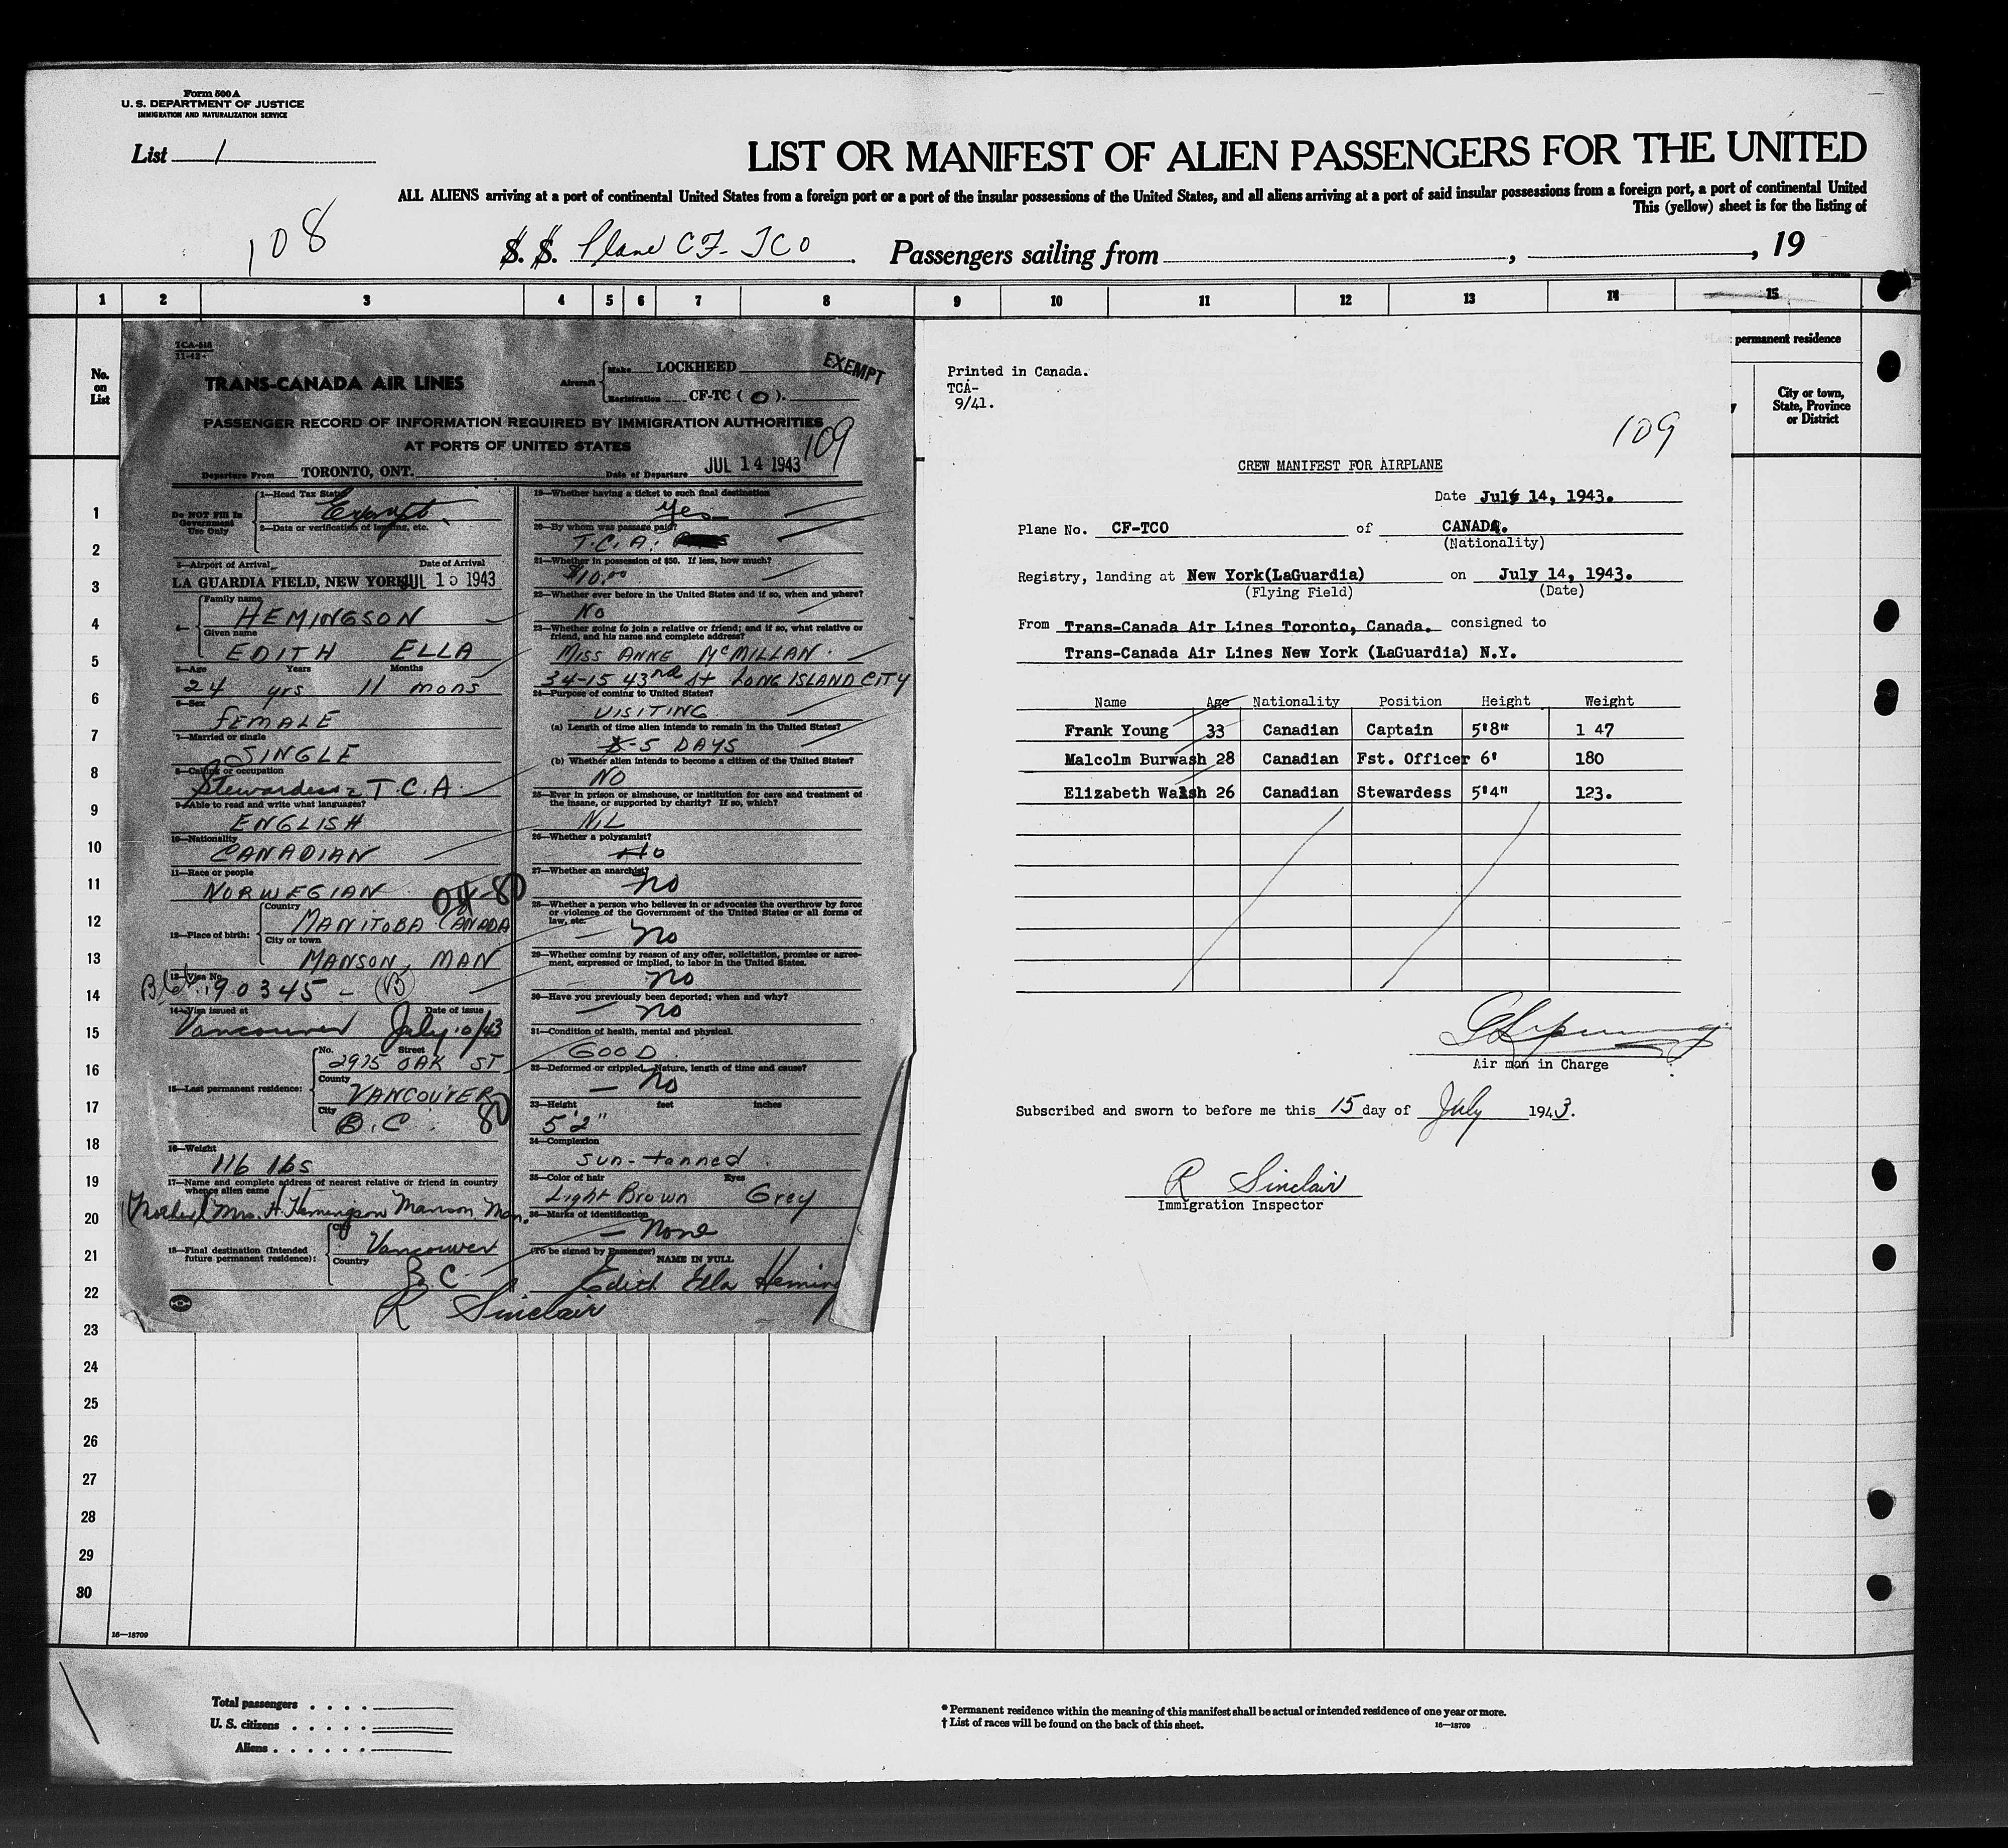 Form 500 A
U. S. DEPARTMENT OF JUSTICE
IMMIGRATION AND NATURALIZATION SERVICE
List 1
LIST OR MANIFEST OF ALIEN PASSENGERS FOR THE UNITED
ALL ALIENS arriving at a port of continental United States from a foreign port or a port of the insular possessions of the United States, and all aliens arriving at a port of said insular possessions from a foreign port, a port of continental United
This (yellow) sheet is for the listing of
108
S. S. Plane CF-TCO Passengers sailing from , , 19
1 2 3 4 5 6 7 8 9 10 11 12 13 14 15
No. on List
permanent residence
City or town, State, Province or District
TCA-518
11-42
TRANS-CANADA AIR LINES
Aircraft Make LOCKHEED
Registration CF-TC ( O ).
EXEMPT
PASSENGER RECORD OF INFORMATION REQUIRED BY IMMIGRATION AUTHORITIES
AT PORTS OF UNITED STATES
109
Departure From TORONTO, ONT. Date of Departure JUL 14 1943
Do NOT Fill in Government Use Only
1—Head Tax Status
Exempt
2—Data or verification of landing, etc.
3—Airport of Arrival Date of Arrival
LA GUARDIA FIELD, NEW YORK JUL 15 1943
4— Family name
HEMINGSON
Given name
EDITH ELLA
5—Age Years Months
24 yrs 11 mons
6—Sex
FEMALE
7—Married or single
SINGLE
8—Calling or occupation
Stewardess - T.C.A.
9—Able to read and write what languages?
ENGLISH
10—Nationality
CANADIAN
11—Race or people
NORWEGIAN
04-80
12—Place of birth: Country
MANITOBA CANADA
City or town
MANSON, MAN
13—Visa No.
90345 - (B)
14—Visa issued at Date of issue
Vancouver July 10/43
15—Last permanent residence: No. Street
2975 OAK ST
County
VANCOUVER
City
B.C. 80
16—Weight
116 lbs
17—Name and complete address of nearest relative or friend in country whence alien came
(Mother) Mrs. H. Hemingson Manson Man.
18—Final destination (Intended future permanent residence): City
Vancouver
Country
B.C.
R Sinclair
19—Whether having a ticket to such final destination
Yes
20—By whom was passage paid?
T.C.A.
21—Whether in possession of $50. If less, how much?
$10.00
22—Whether ever before in the United States and if so, when and where?
NO
23—Whether going to join a relative or friend; and if so, what relative or friend, and his name and complete address?
MISS ANNE McMILLAN.
34-15 43rd St LONG ISLAND CITY
24—Purpose of coming to United States?
VISITING
(a) Length of time alien intends to remain in the United States?
5 DAYS
(b) Whether alien intends to become a citizen of the United States?
NO
25—Ever in prison or almshouse, or institution for care and treatment of the insane, or supported by charity? If so, which?
NIL
26—Whether a polygamist?
No
27—Whether an anarchist?
no
28—Whether a person who believes in or advocates the overthrow by force or violence of the Government of the United States or all forms of law, etc.
— no
29—Whether coming by reason of any offer, solicitation, promise or agreement, expressed or implied, to labor in the United States.
— no
30—Have you previously been deported; when and why?
— no
31—Condition of health, mental and physical.
GOOD
32—Deformed or crippled. Nature, length of time and cause?
— no
33—Height feet inches
5'2"
34—Complexion
sun-tanned
35—Color of hair Eyes
Light Brown Grey
36—Marks of identification
— none
(To be signed by Passenger)
NAME IN FULL
Edith Ella Heming
Printed in Canada.
TCA-
9/41.
109
CREW MANIFEST FOR AIRPLANE
Date July 14, 1943.
Plane No. CF-TCO of CANADA.
(Nationality)
Registry, landing at New York(LaGuardia) on July 14, 1943.
(Flying Field) (Date)
From Trans-Canada Air Lines Toronto, Canada. consigned to
Trans-Canada Air Lines New York (LaGuardia) N.Y.
Name Age Nationality Position Height Weight
Frank Young 33 Canadian Captain 5'8" 1 47
Malcolm Burwash 28 Canadian Fst. Officer 6' 180
Elizabeth Walsh 26 Canadian Stewardess 5'4" 123.
Air man in Charge
Subscribed and sworn to before me this 15 day of July 1943.
R Sinclair
Immigration Inspector
1
2
3
4
5
6
7
8
9
10
11
12
13
14
15
16
17
18
19
20
21
22
23
24
25
26
27
28
29
30
16—18709
Total passengers . . . .
U. S. citizens . . . . .
Aliens . . . . . .
* Permanent residence within the meaning of this manifest shall be actual or intended residence of one year or more.
† List of races will be found on the back of this sheet.
16—18709